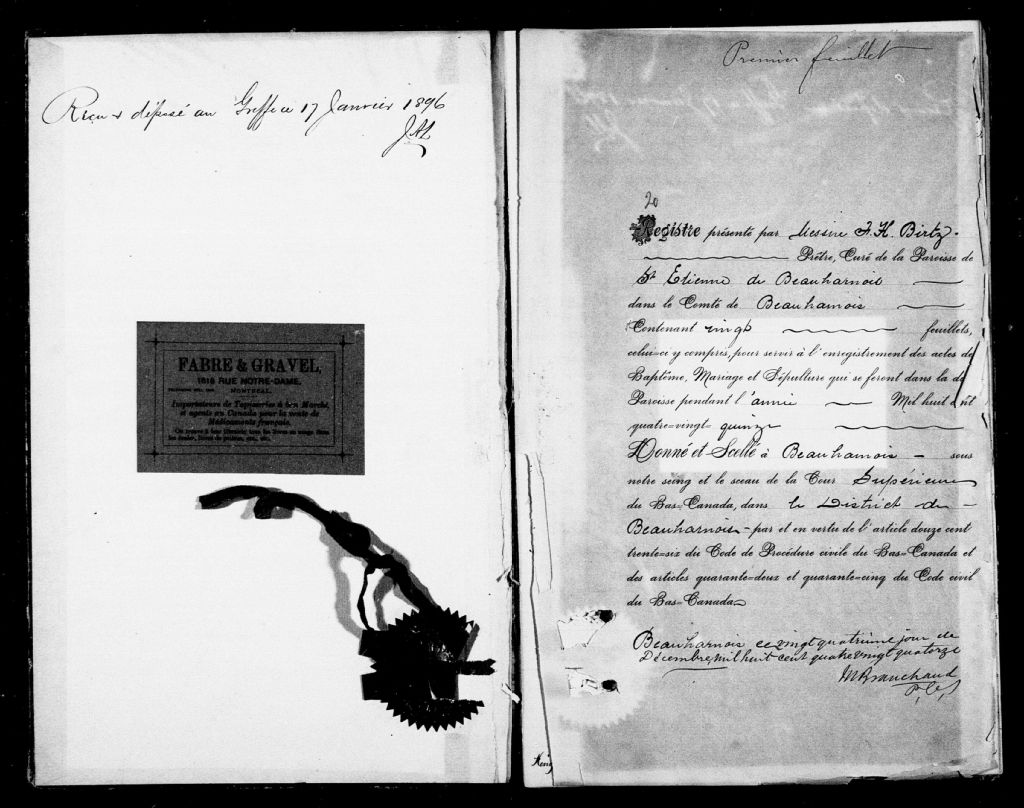 Reçu & déposé au Greffe ce 17 Janvier 1896
JAL
FABRE & GRAVEL,
1618 RUE NOTRE-DAME.
MONTREAL.
Importateurs de Tapisseries à bon Marché,
et agents au Canada pour la vente de
Médicaments français.
On trouve à leur librairie, tous les livres en usage dans
les écoles, livres de prières, etc., etc.
Premier feuillet
20
Registre présenté par Messire F. H. Birtz
Prêtre, Curé de la Paroisse de
St Etienne de Beauharnois
dans le Comté de Beauharnois
Contenant vingt feuillets,
celui=ci y compris, pour servir à l'enregistrement des actes de
Baptême, Mariage et Sépulture qui se feront dans la de
Paroisse pendant l'année Mil huit cent
quatre=vingt= quinze
Donné et Scellé à Beauharnois sous
notre seing et le sceau de la Cour Supérieure
du Bas=Canada, dans le District de
Beauharnois - par et en vertu de l'article douze cent
trente=six du Code de Procédure civile du Bas=Canada et
des articles quarante=deux et quarante=cinq du Code civil
du Bas=Canada
Beauharnois ce vingt quatrième jour de
Décembre, mil huit cent quatre vingt quatorze
M Branchaud
P.C.S.